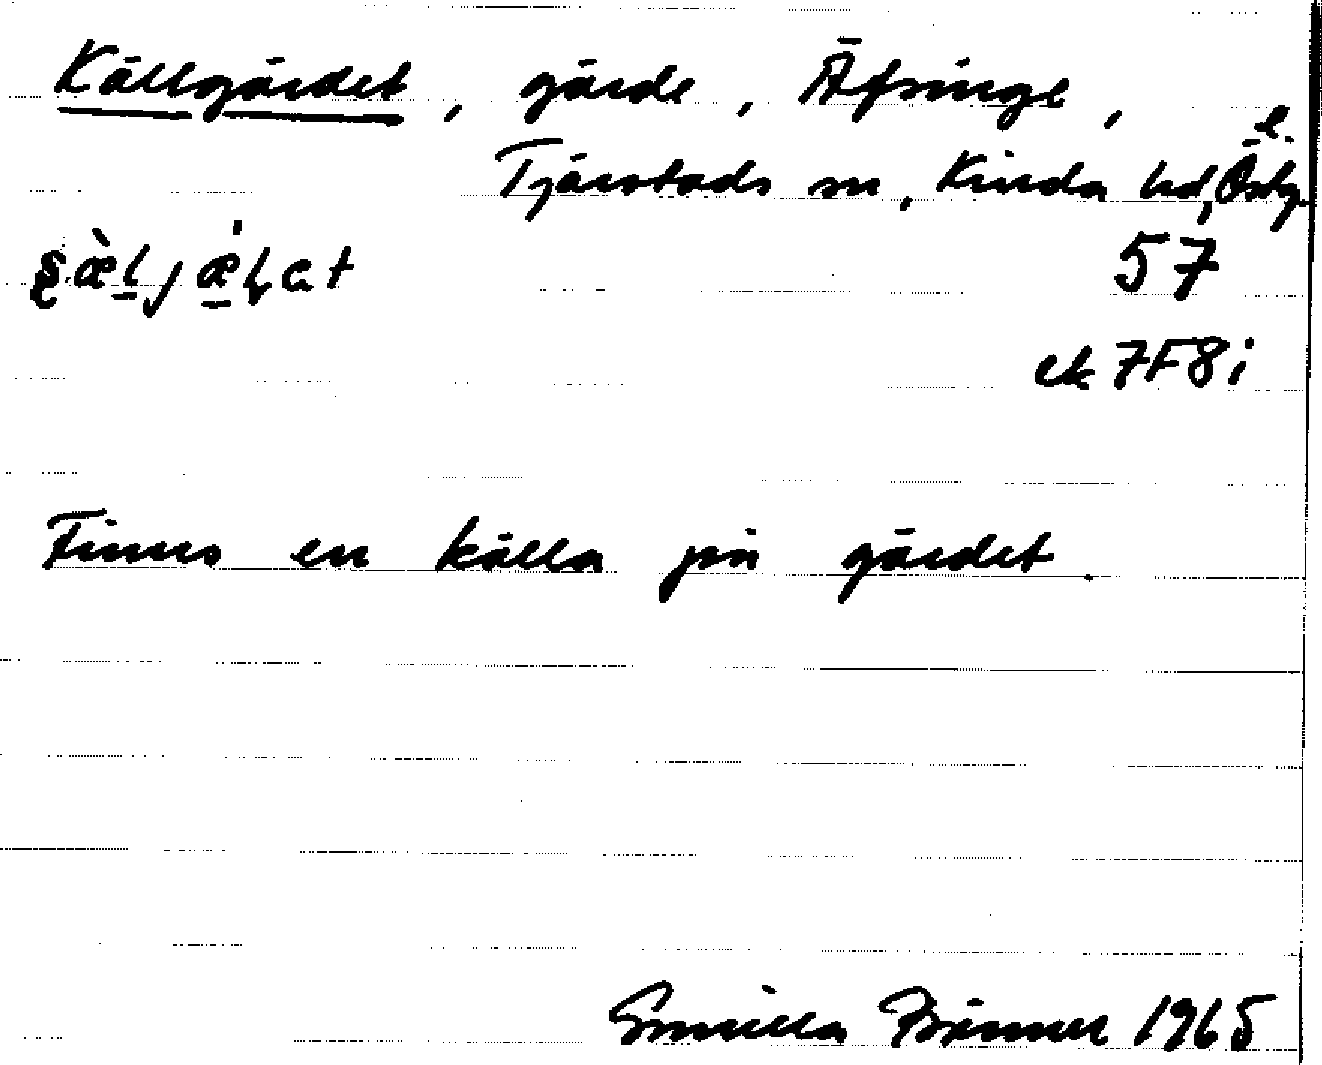 Källgärdet, gärde, Äfsinge,
Tjärstads sn, Kinda hd, Östg. l.
57
ek 7F8i
Finns en källa på gärdet.
Gunilla 1965